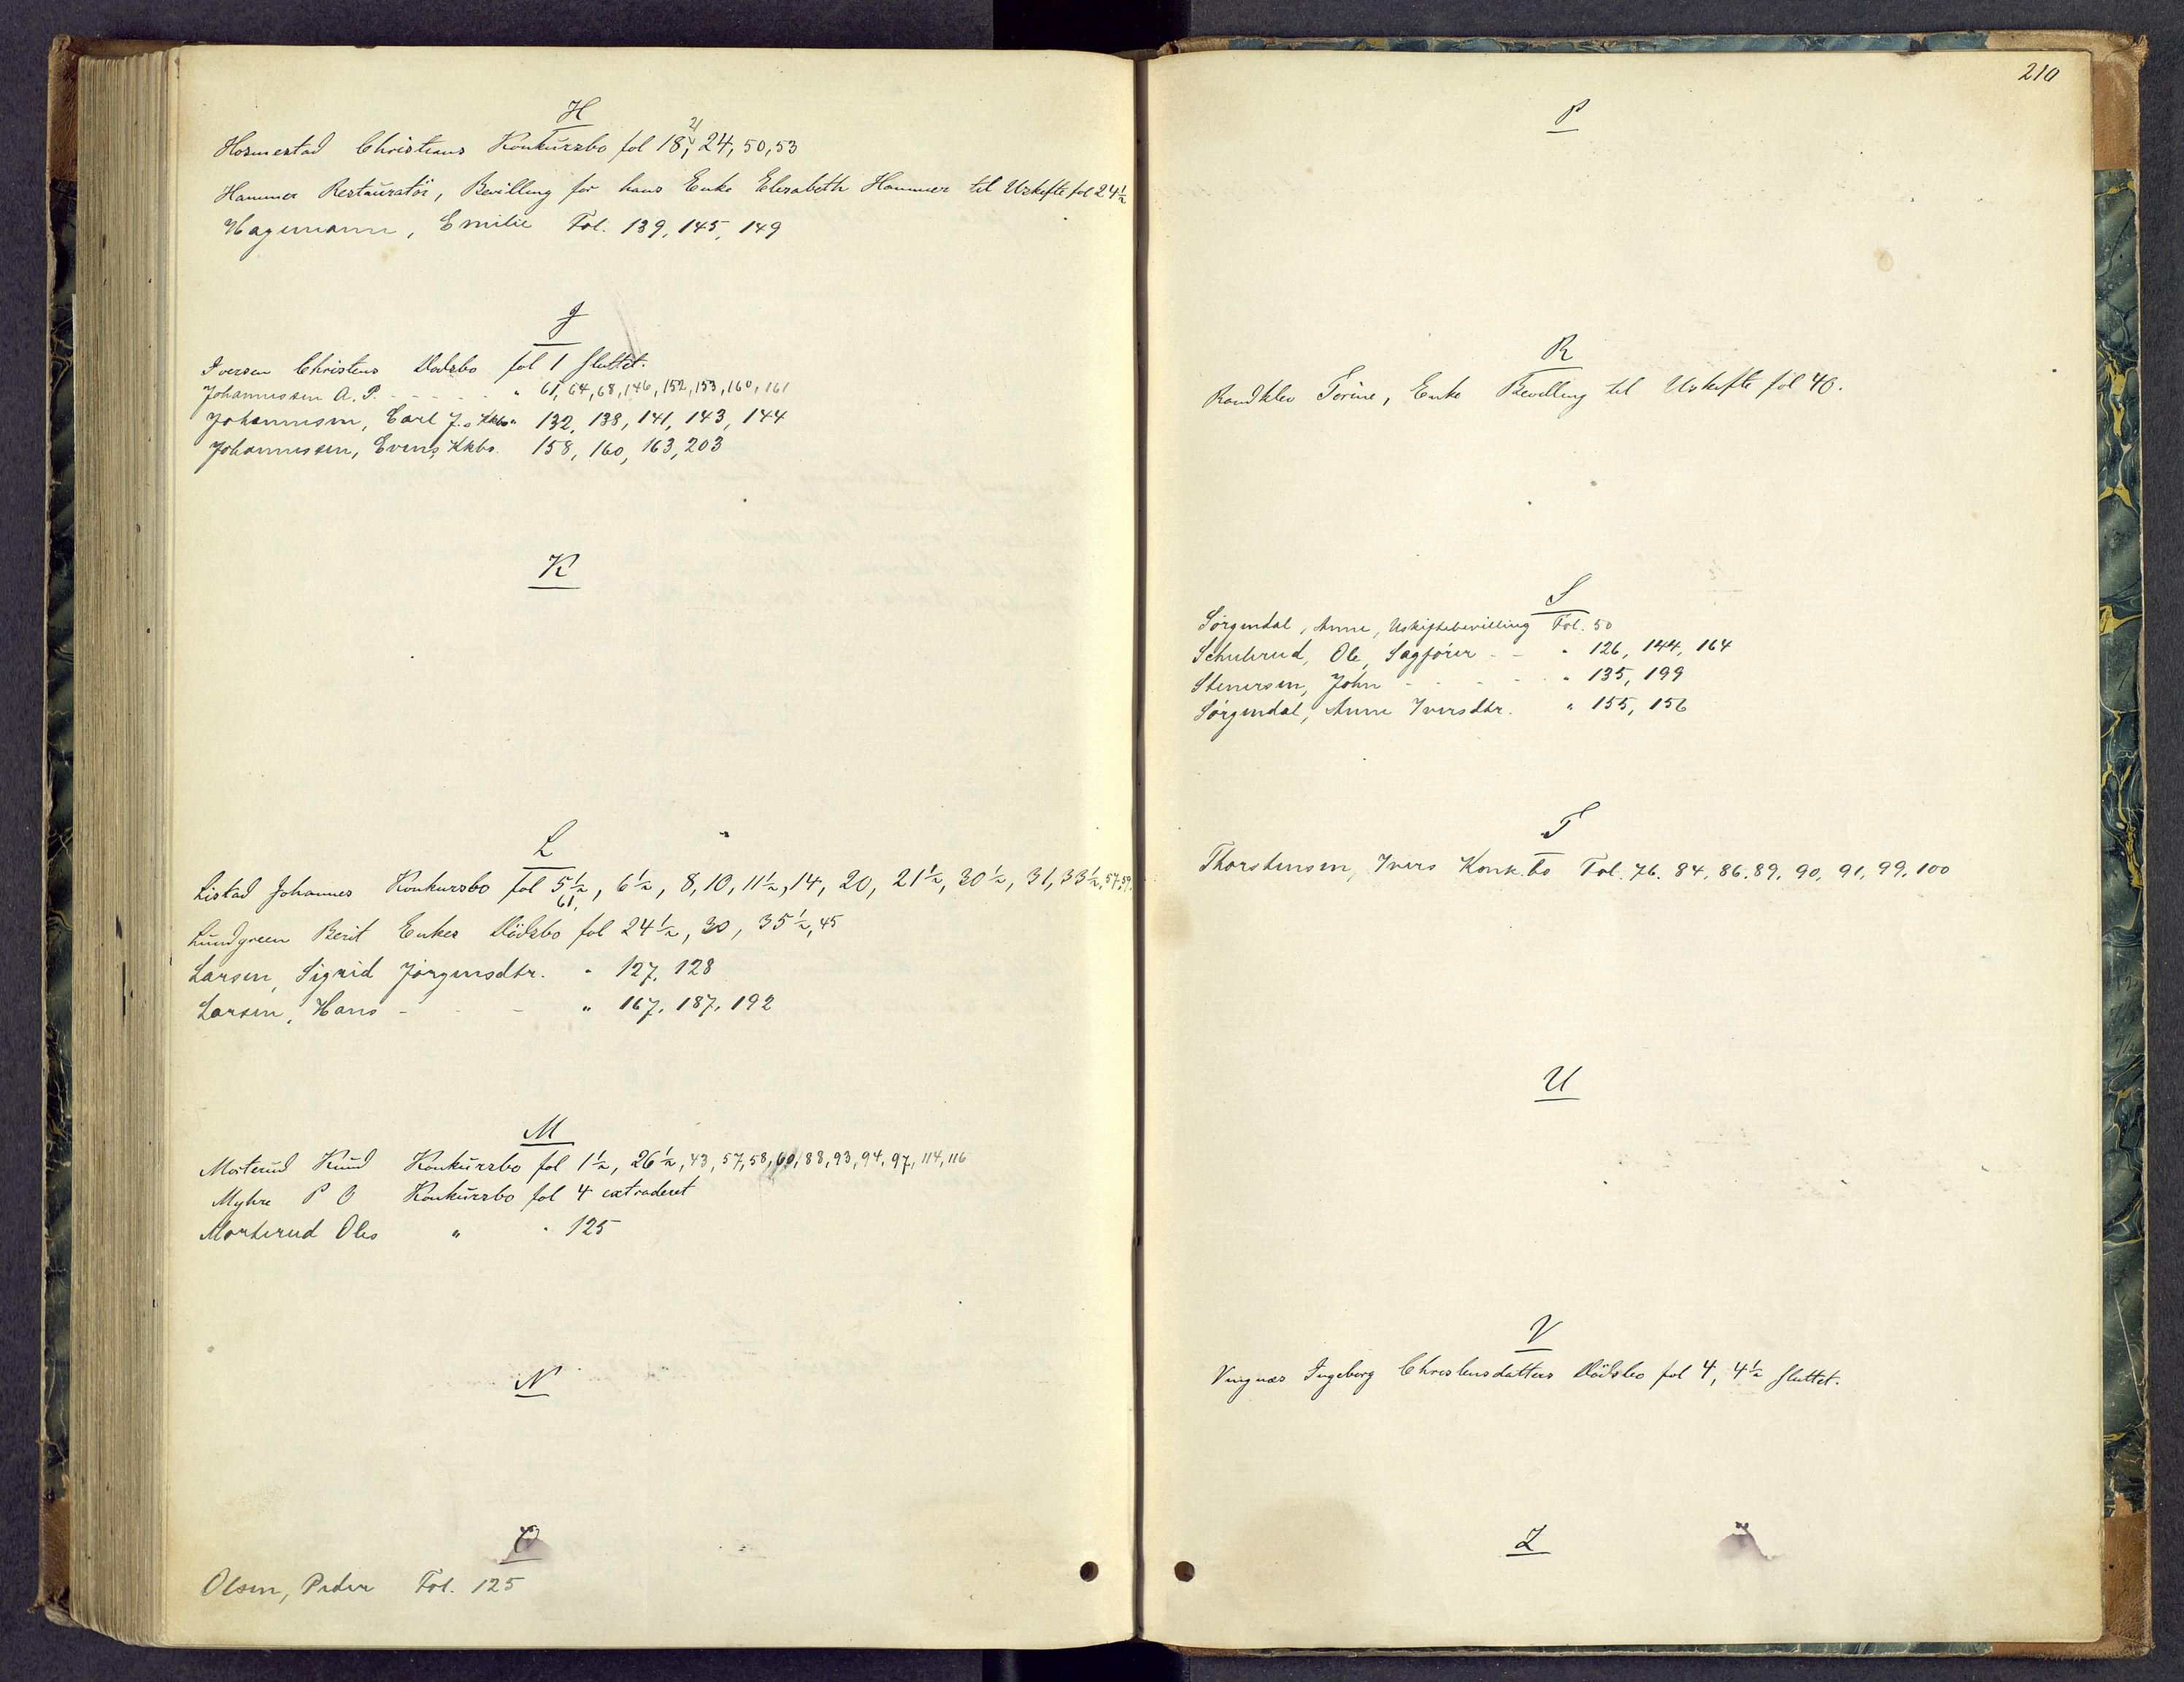 H
Hosmestad Christians Konkŭrsbo fol 18, 21, 24, 50, 53
Hammer Restaŭratör, Bevilling for hans Enke Elisabeth Hammer til Uskifte fol 24½
Hagemann, Emilie Fol. 139, 145, 149
J
Iversen Christens Dödsbo fol 1 sluttet.
Johannessen A. P. - - - - " 61, 64, 68, 146, 152, 153, 160, 161
Johannesen, Carl J.s Kkbo " 132, 138, 141, 143, 144
Johannessen, Evens Kkbo. 158, 160, 163, 203
K
L
Listad Johannes Konkursbo fol 5½, 6½, 8, 10, 11½, 14, 20, 21½, 30½, 31, 33½, 57, 59,
61,
Lŭndgreen Berit Enkes Dödsbo fol 24½, 30, 35½, 45
Larsen, Sigrid Jörgensdtr. " 127, 128
Larsen, Hans - - - " 167, 187, 192
M
Morterŭd Knŭd Konkŭrsbo fol 1½, 26½, 43, 57, 58, 60, 88, 93, 94, 97, 114, 116
Myhre P O Konkŭrsbo fol 4 extraderet
Morterud Oles " " 125
N
O
Olsen, Peder Fol. 125
210
P
R
Randklev Torine, Enke Bevilling til Uskifte fol 40.
S
Sørgendal, Anne, Uskiftebevilling Fol. 50
Schulerud, Ole, Sagfører - - " 126, 144, 164
Stenersen, John - - - - " 135, 199
Sørgendal, Anne Iversdtr. " 155, 156
T
Thorstensen, Ivers Konk.bo Fol. 76. 84, 86. 89, 90, 91, 99, 100
U
V
Vingnæs Ingeborg Christensdatters Dödsbo fol 4, 4½ sluttet.
Z